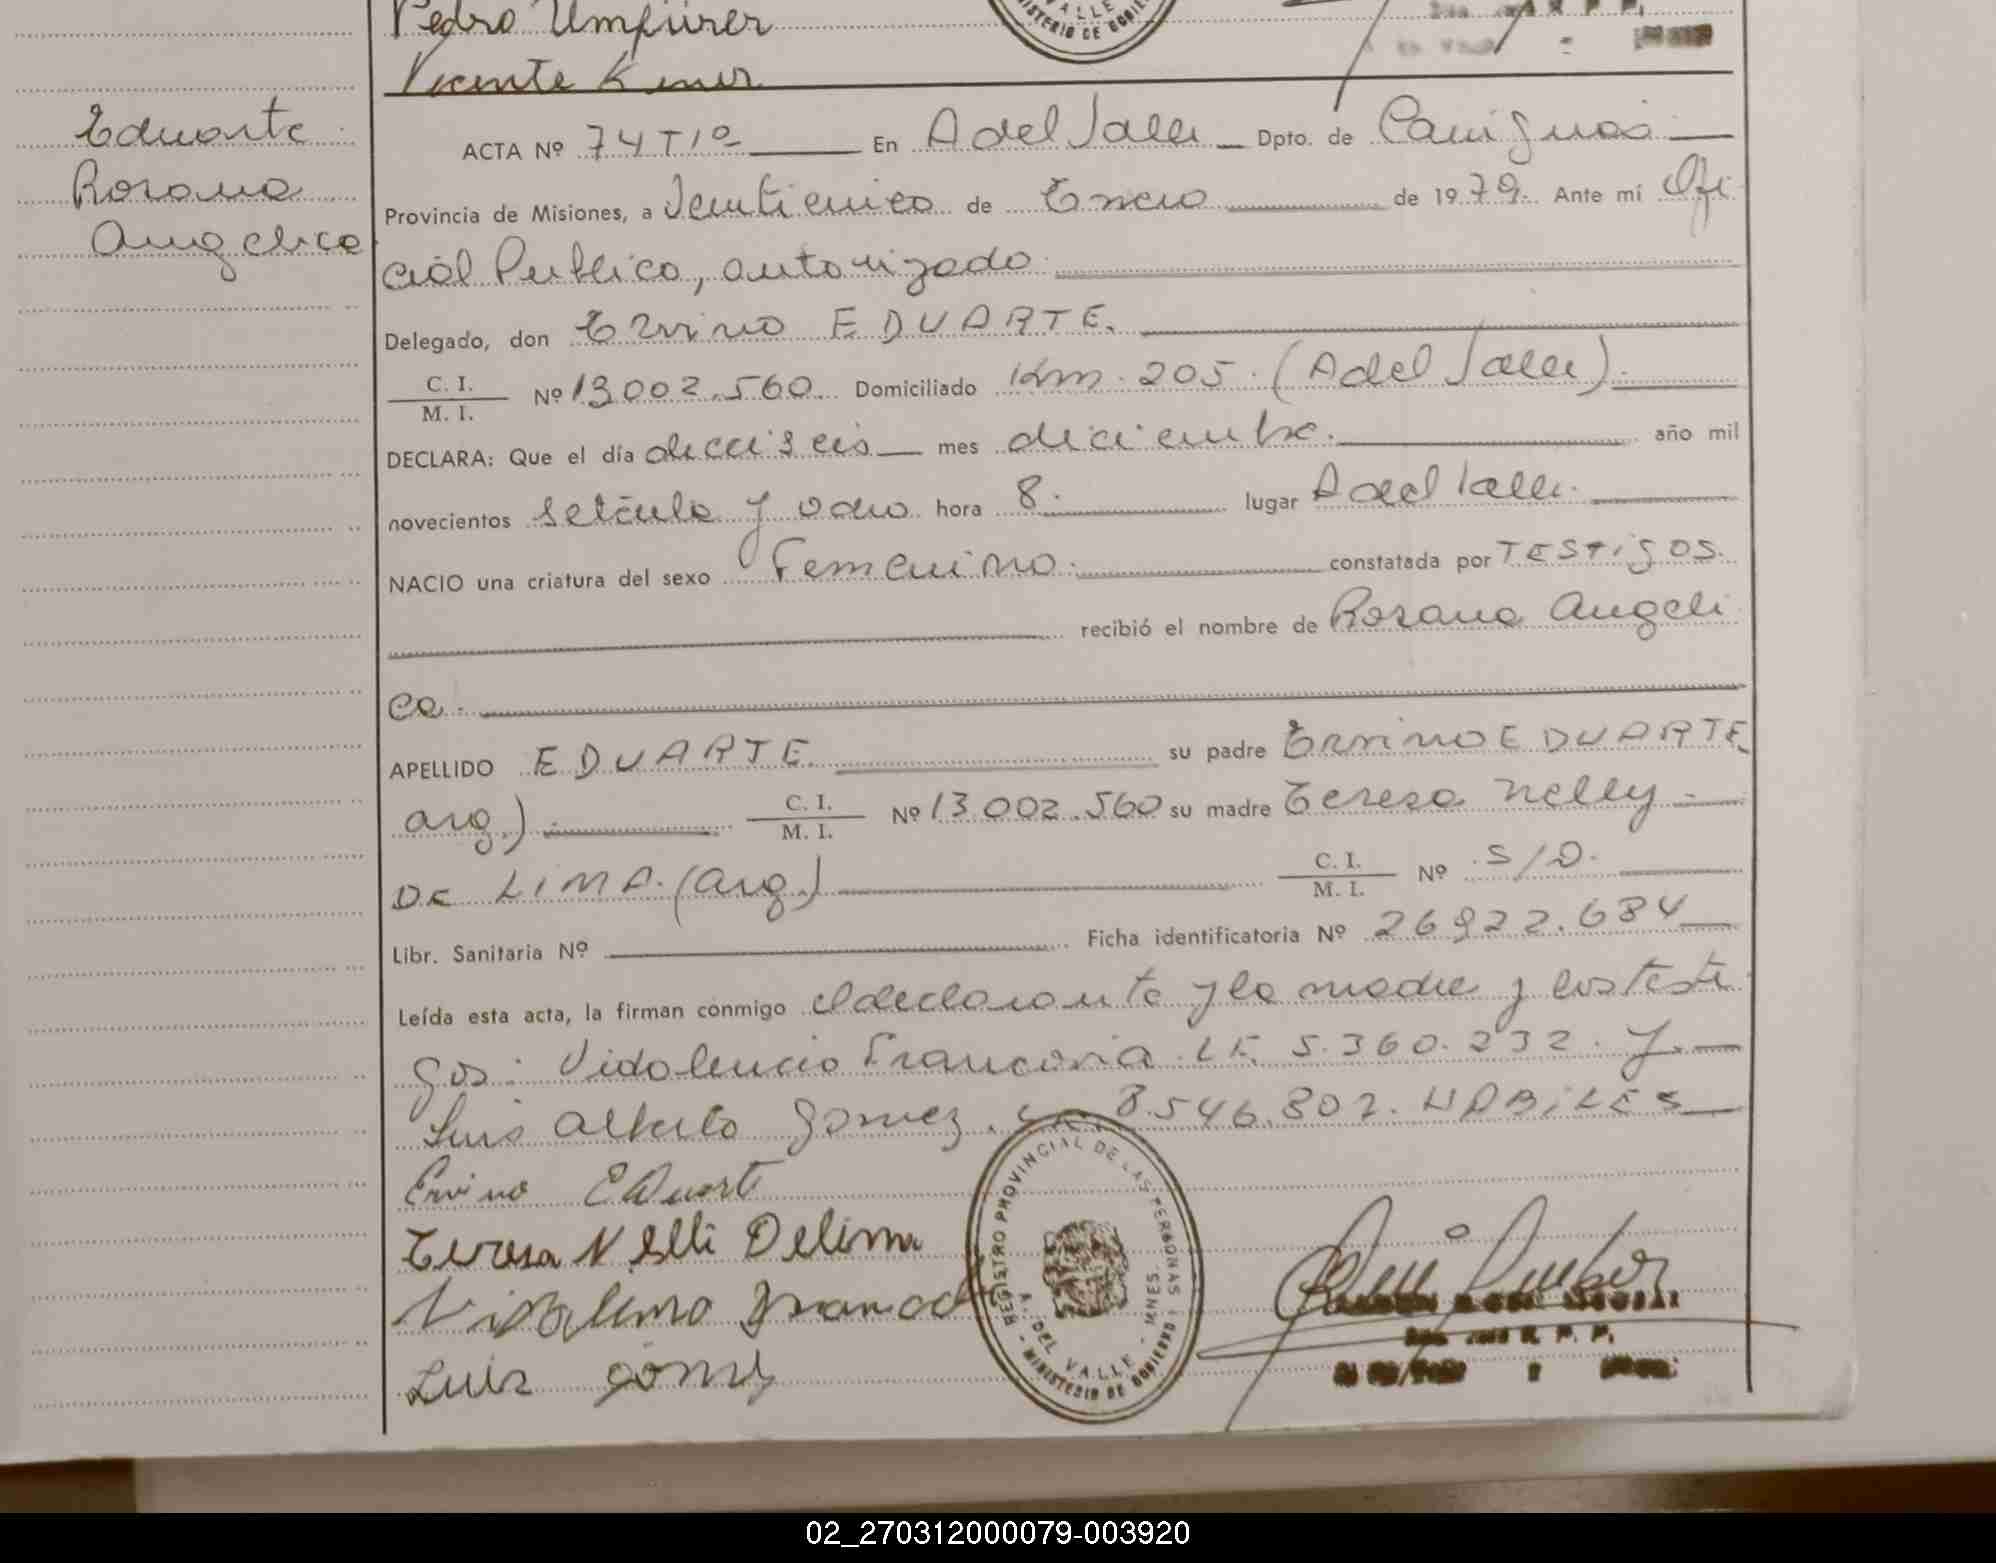 Pedro Umfürer
Vicente
Eduarte
Rosana
Angelica
ACTA Nº 74 T 1º En A del Valle Dpto. de Cainguas
Provincia de Misiones, a Veinticinco de Enero de 1979. Ante mí Ofi
cial Publico, autorizado
Delegado, don Ervino EDUARTE.
C. I.
M. I. Nº 13.002.560. Domiciliado Km. 205. (A del Valle).
DECLARA: Que el día dieciseis mes diciembre. año mil
novecientos setenta y ocho hora 8. lugar A del Valle.
NACIO una criatura del sexo Femenino. constatada por TESTigos.
recibió el nombre de Rosana Angeli
ca.
APELLIDO EDUARTE. su padre Ervino EDUARTE
arg.) C. I.
M. I. Nº 13.002.560 su madre Teresa Nelly
DE LIMA. (arg.) C. I.
M. I. Nº S/D.
Libr. Sanitaria Nº Ficha identificatoria Nº 26922.684
Leída esta acta, la firman conmigo el declarante y la madre y los testi
gos: Vidalencio LE. 5.360.232. y
Luis Alberto Gomez. 8.546.802. HABiLES
Ervino EDuarte
Teresa Nelli Delima
Luis gomez
REGISTRO PROVINCIAL DE LAS PERSONAS
A. DEL VALLE - MNES.
MINISTERIO DE GOBIERNO
02_270312000079-003920